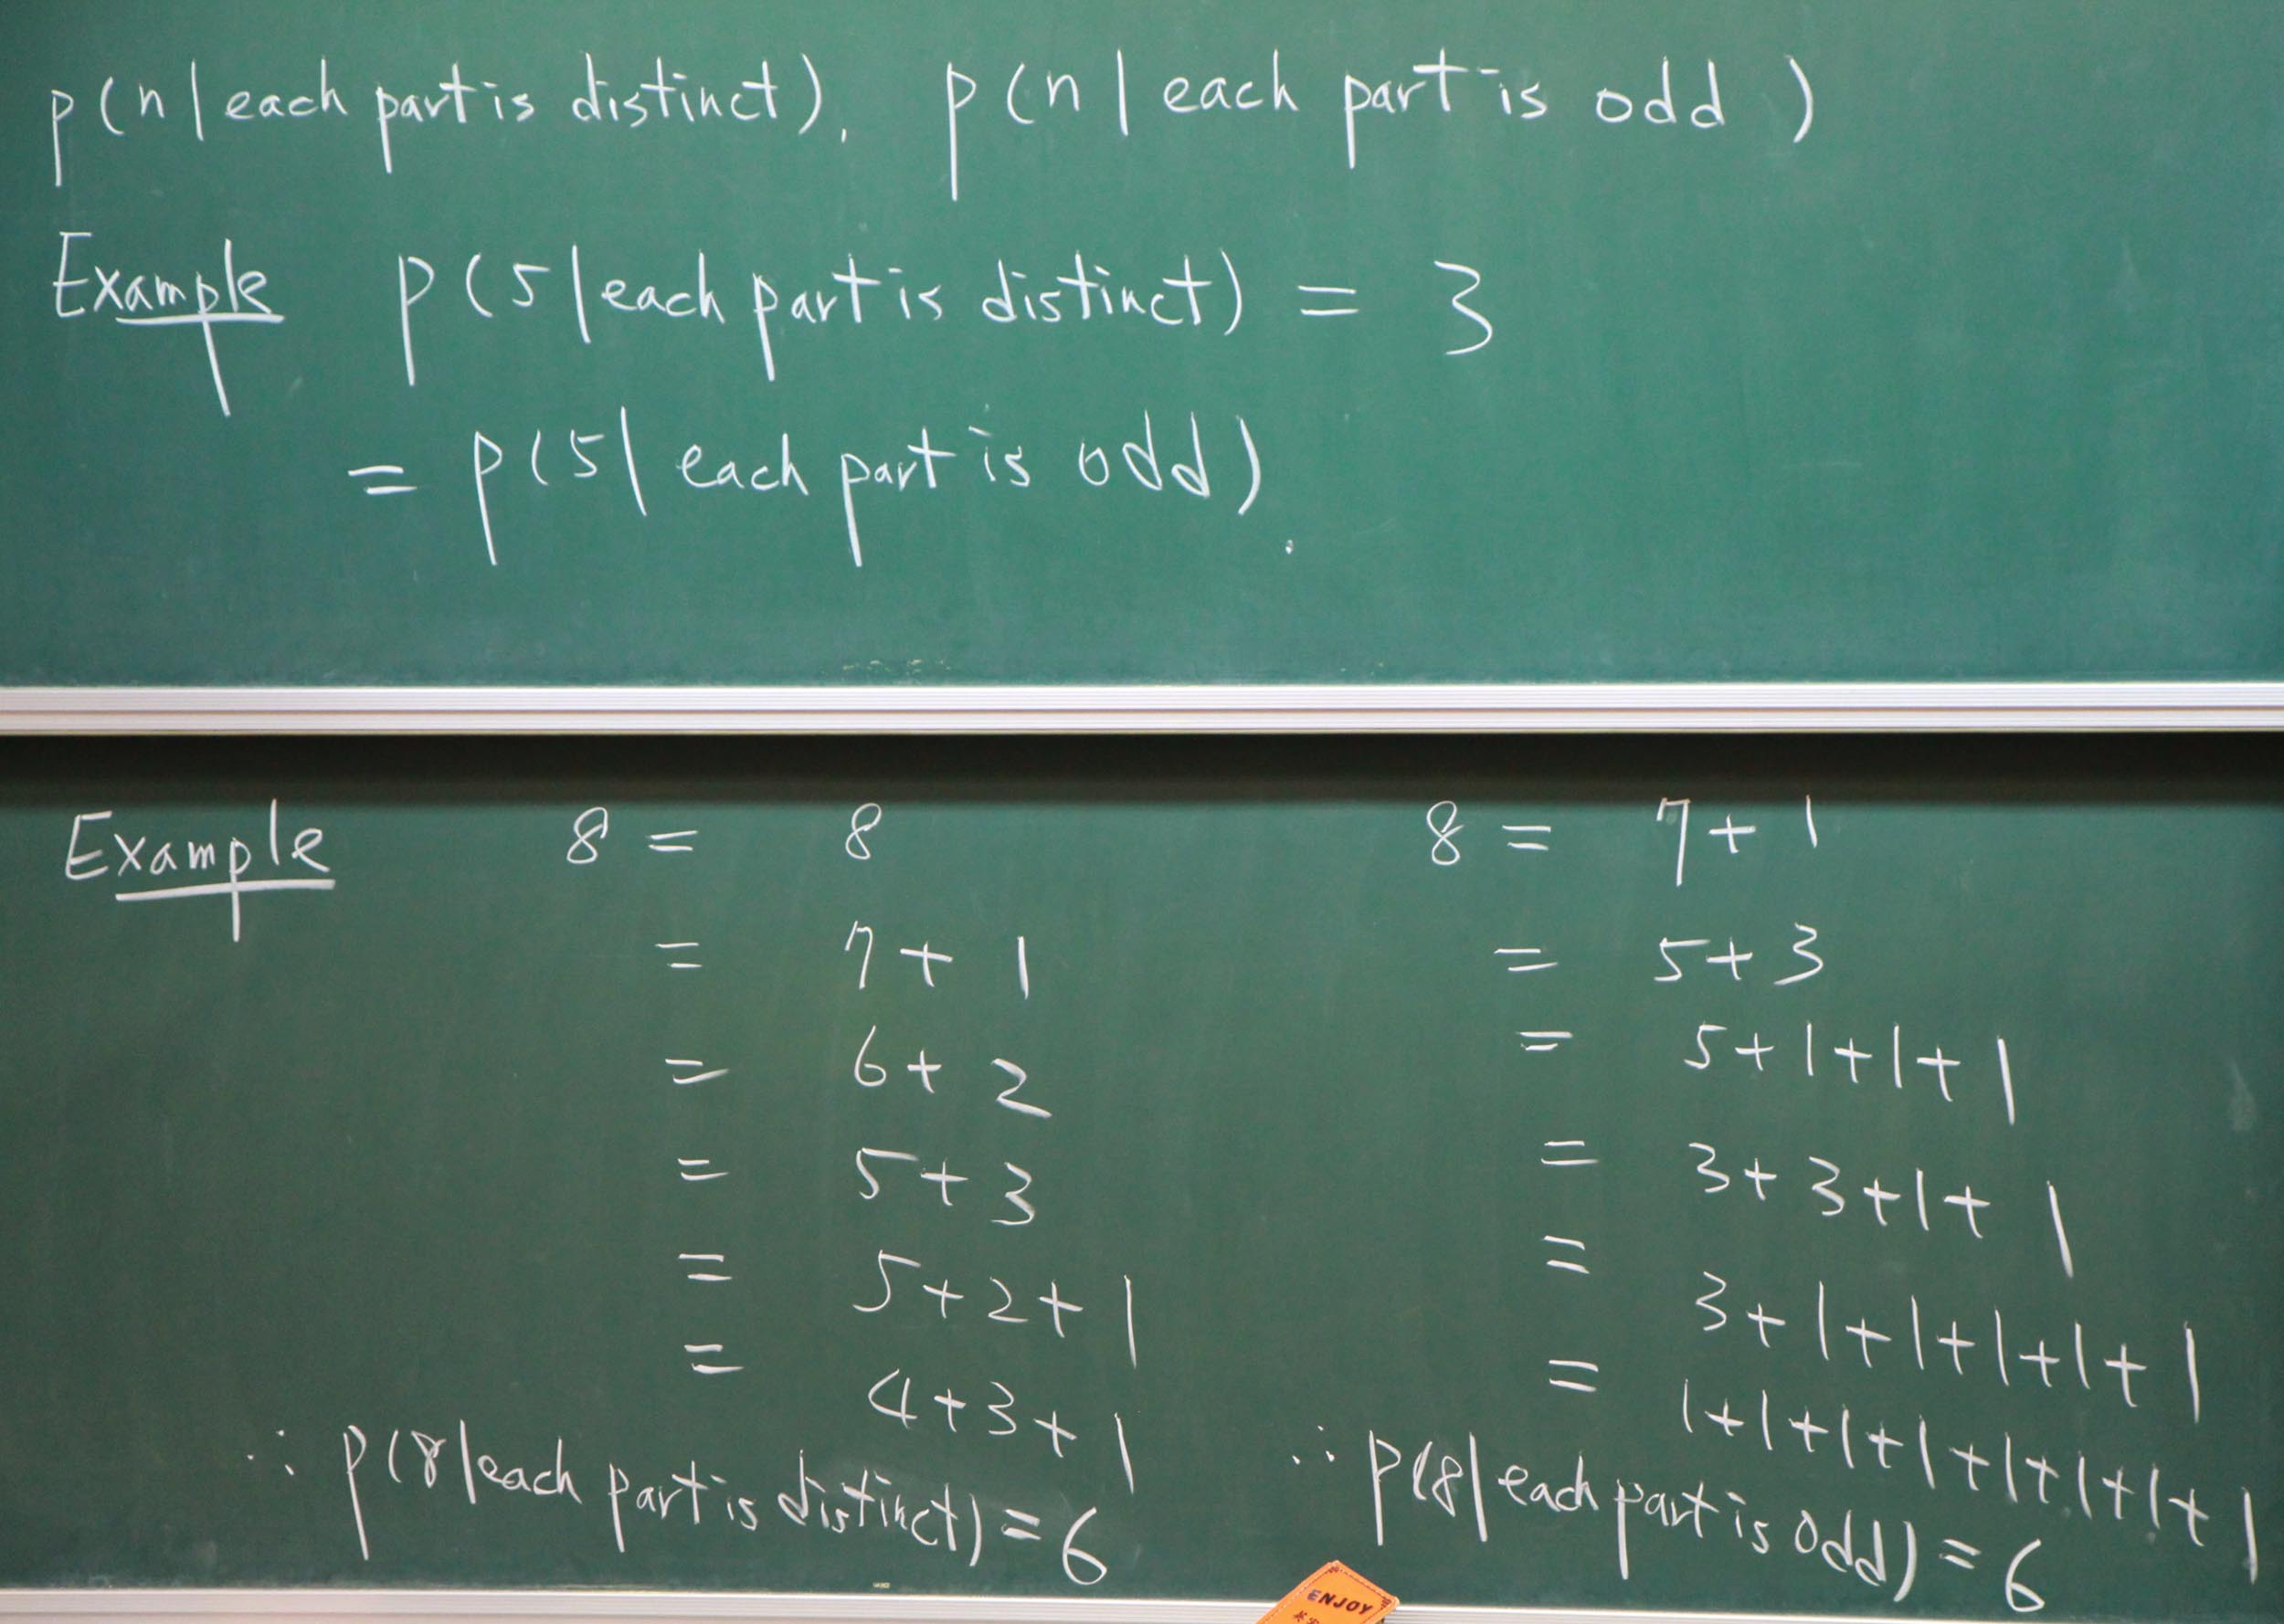 p(n | each part is distinct), p(n | each part is odd)
Example p(5 | each part is distinct) = 3
= p(5 | each part is odd).
Example 8 = 8
= 7 + 1
= 6 + 2
= 5 + 3
= 5 + 2 + 1
= 4 + 3 + 1
∴ p(8 | each part is distinct) = 6
8 = 7 + 1
= 5 + 3
= 5 + 1 + 1 + 1
= 3 + 3 + 1 + 1
= 3 + 1 + 1 + 1 + 1 + 1
= 1 + 1 + 1 + 1 + 1 + 1 + 1 + 1
∴ p(8 | each part is odd) = 6
ENJOY